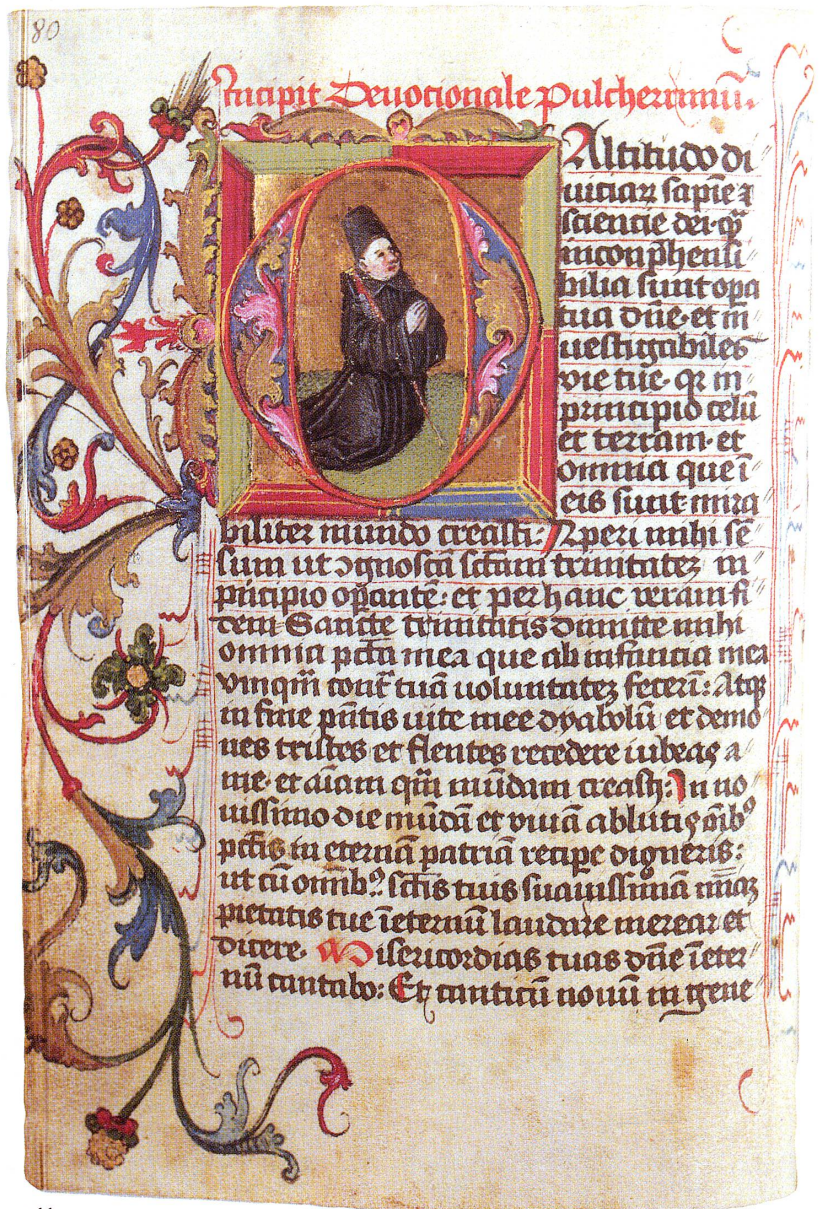 80
Incipit Deuotionale Pulcherrimū.
O Altitudo di
uitiaꝝ sapiē ⁊
scientie dei· ꝙ̄
incōpͬhensi
bilia sunt oꝑa
tua dn̄e· et in
uestigabiles
vie tue· qꝛ in
principio celū
et terram· et
omnia que ī
eis sunt mira
biliter mundo creasti: Aperi mihi sē
sum ut ꝯgnoscā sc̄tam trinitateꝫ in
principio oꝑantē: et per hanc veram fi
dem Sancte trinitatis dimitte mihi
omnia pc̄ta mea que ab infantia mea
vnqm̄ cont͛ tuā uoluntateꝫ feceri: Atqꝫ
in fine pn̄tis uite mee dyabolū et demo
nes tristes et flentes recedere iubeas a
me· et aīam qm̄ mūdam creasti: In no
uissimo die mūdā et viuā ablutis om̄ibꝰ
pc̄tis in eternā patriā recipe digneris:
ut cū omnibꝰ sc̄tis tuis suauissimā
pietatis tue īeternū laudare merear et
dicere· Misericordias tuas dn̄e īeter
nū cantabo: Et canticū nouū in gene